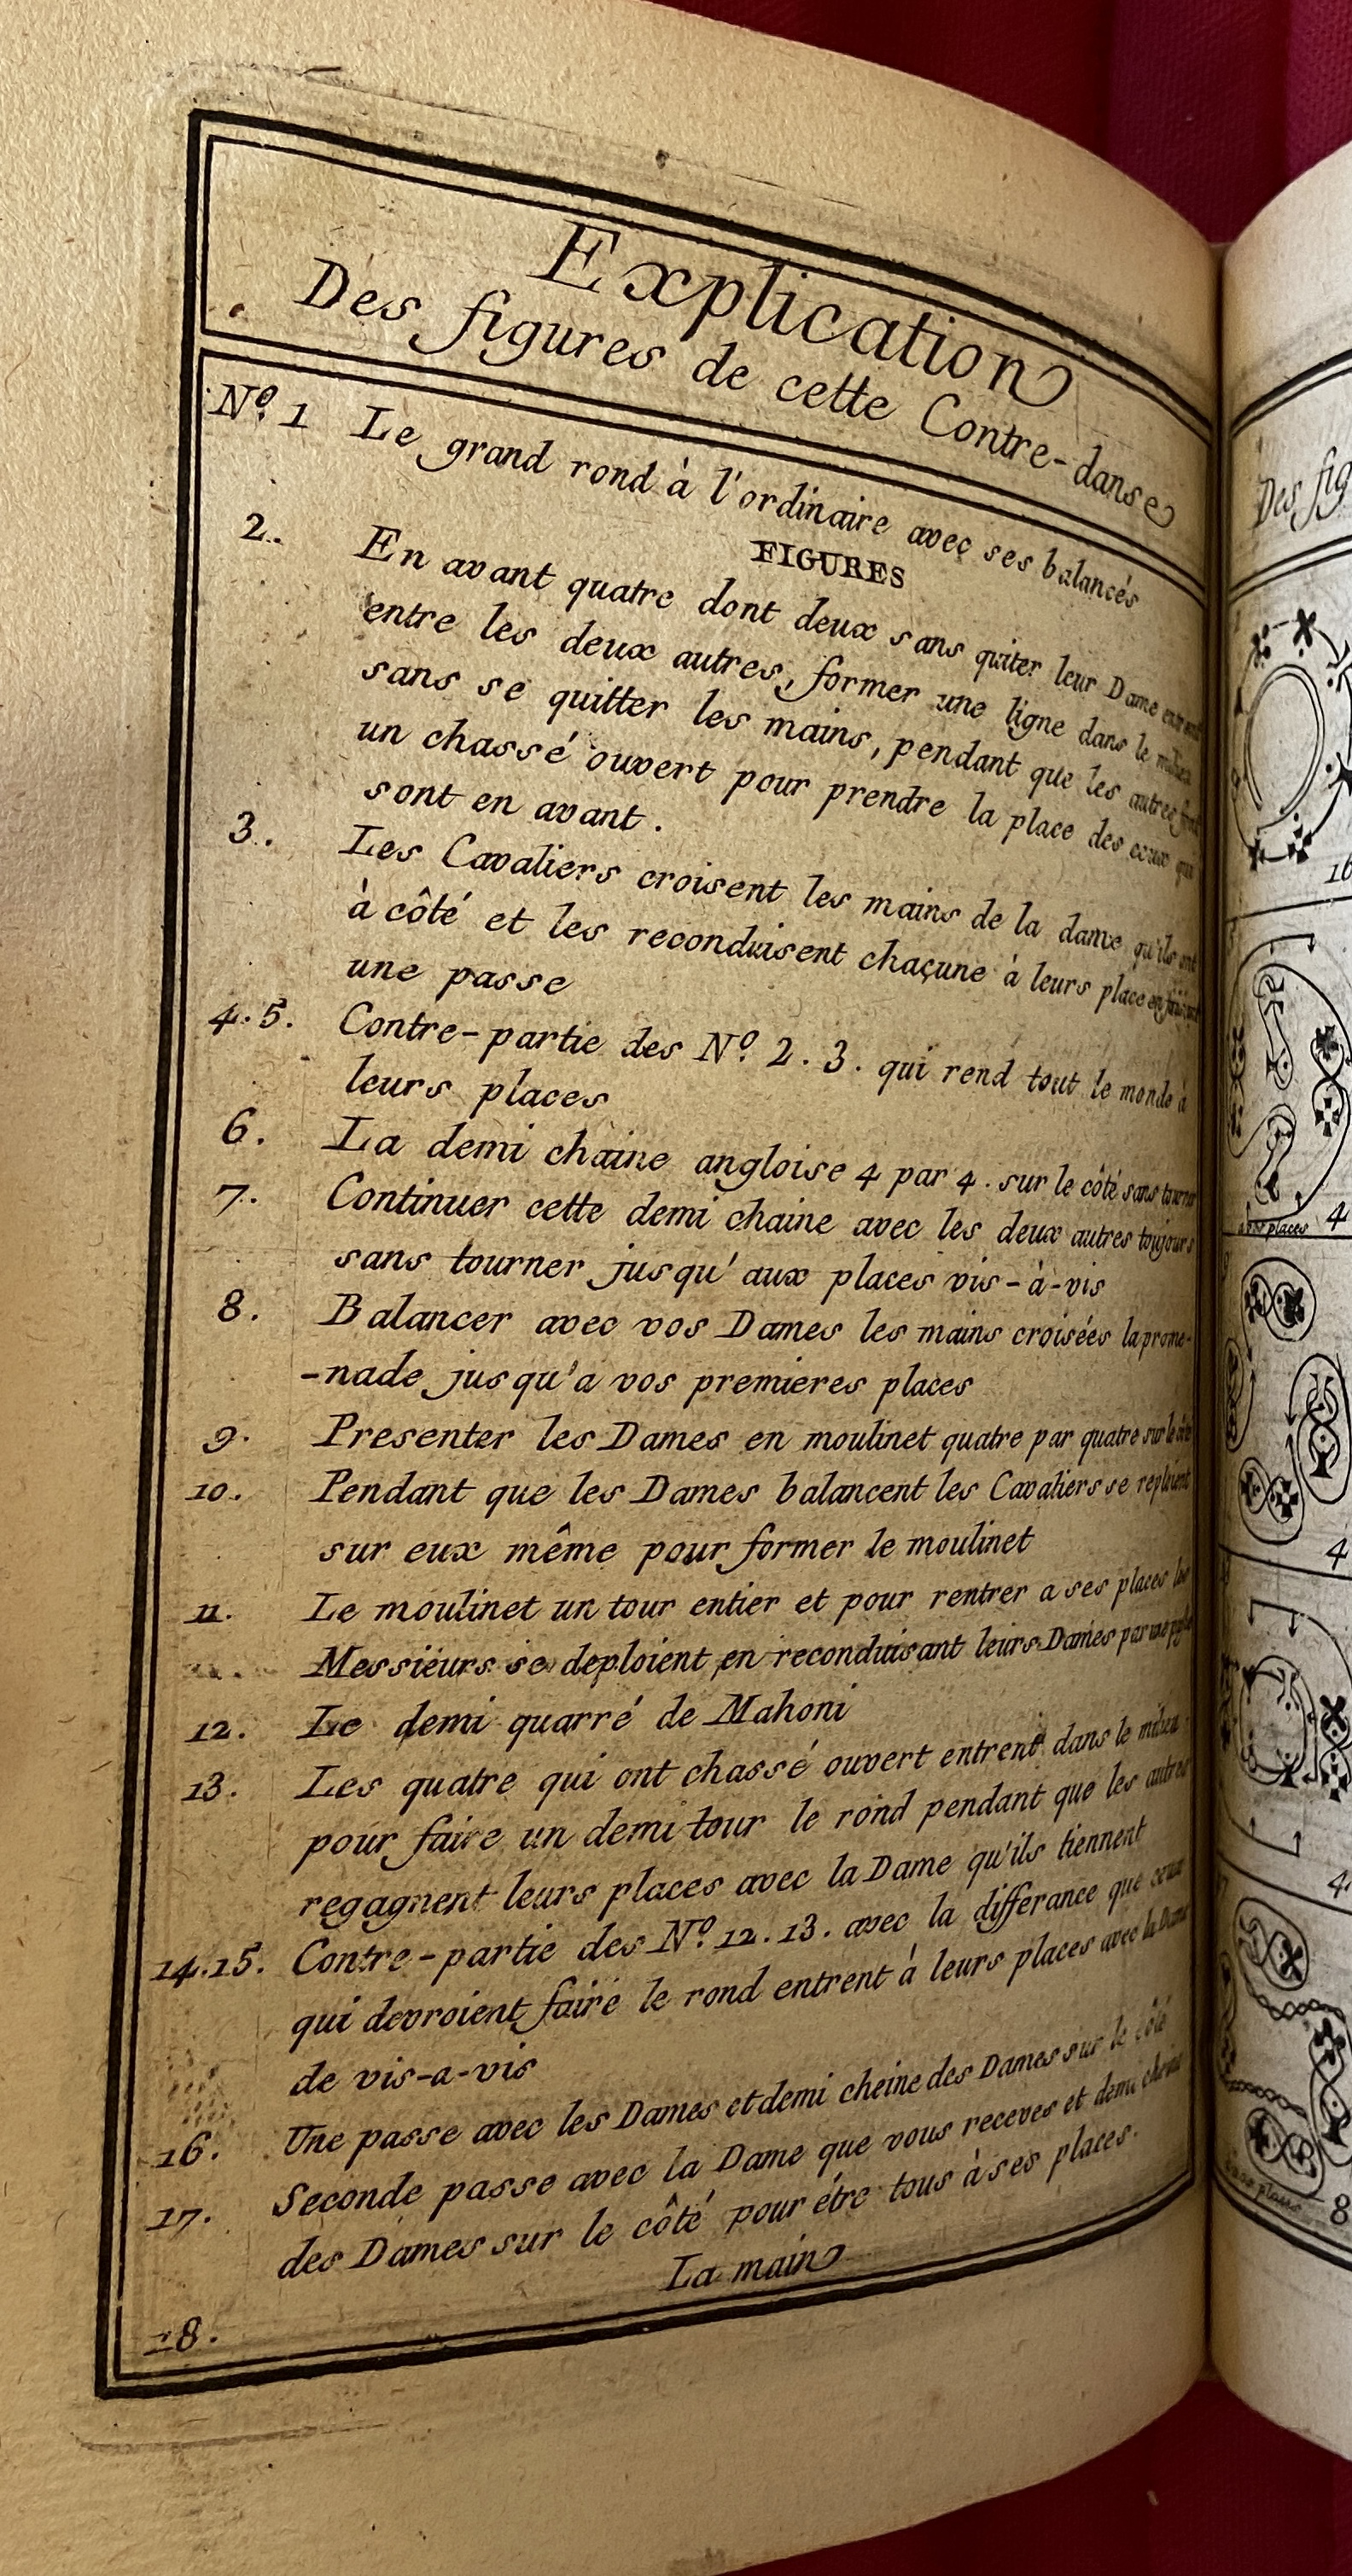 Explication
Des figures de cette Contre-danse
Nº. 1 Le grand rond à l'ordinaire avec ses balancés
FIGURES
2. En avant quatre dont deux sans quiter leur Dame
entre les deux autres, former une ligne dans le milieu
sans se quitter les mains, pendant que les autres font
un chassé ouvert pour prendre la place des ceux qui
sont en avant.
3. Les Cavaliers croisent les mains de la dame qu'ils ont
à côté et les reconduisent chaçune à leurs place en
une passe
4. 5. Contre-partie des Nº. 2. 3. qui rend tout le monde à
leurs places
6. La demi chaine angloise 4 par 4. sur le côté sans tourner
7. Continuer cette demi chaine avec les deux autres toujours
sans tourner jusqu'aux places vis-à-vis
8. Balancer avec vos Dames les mains croisées la prome-
-nade jusqu'a vos premieres places
9. Presenter les Dames en moulinet quatre par quatre sur le côté
10. Pendant que les Dames balancent les Cavaliers se reploient
sur eux même pour former le moulinet
11. Le moulinet un tour entier et pour rentrer a ses places les
Messieurs se deploient en reconduisant leurs Dames par une
12. Le demi quarré de Mahoni
13. Les quatre qui ont chassé ouvert entrent dans le milieu
pour faire un demi tour le rond pendant que les autres
regagnent leurs places avec la Dame qu'ils tiennent
14. 15. Contre-partie des Nº. 12. 13. avec la differance que ceux
qui devroient faire le rond entrent à leurs places avec la Dame
de vis-a-vis
16. Une passe avec les Dames et demi cheine des Dames sur le côté
17. Seconde passe avec la Dame que vous receves et demi cheine
des Dames sur le côté pour étre tous à ses places.
18. La main
Des fig
16
4
4
4
8